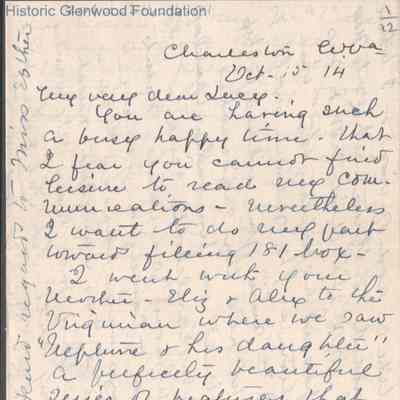 Historic Glenwood Foundation
1/12
Charleston W.Va
Oct- 15 14
My very dear Lucy.
You are having such
a busy happy time. that
I fear you cannot find
leisure to read my com-
munications - nevertheless
I want to do my part
toward filling 181 box-
I went with your
Mother - Eliz & Alex to the
Virginian where we saw
"Neptune & his daughter"
a perfectly beautiful
series of pictures that
Kind regards to Miss Esther